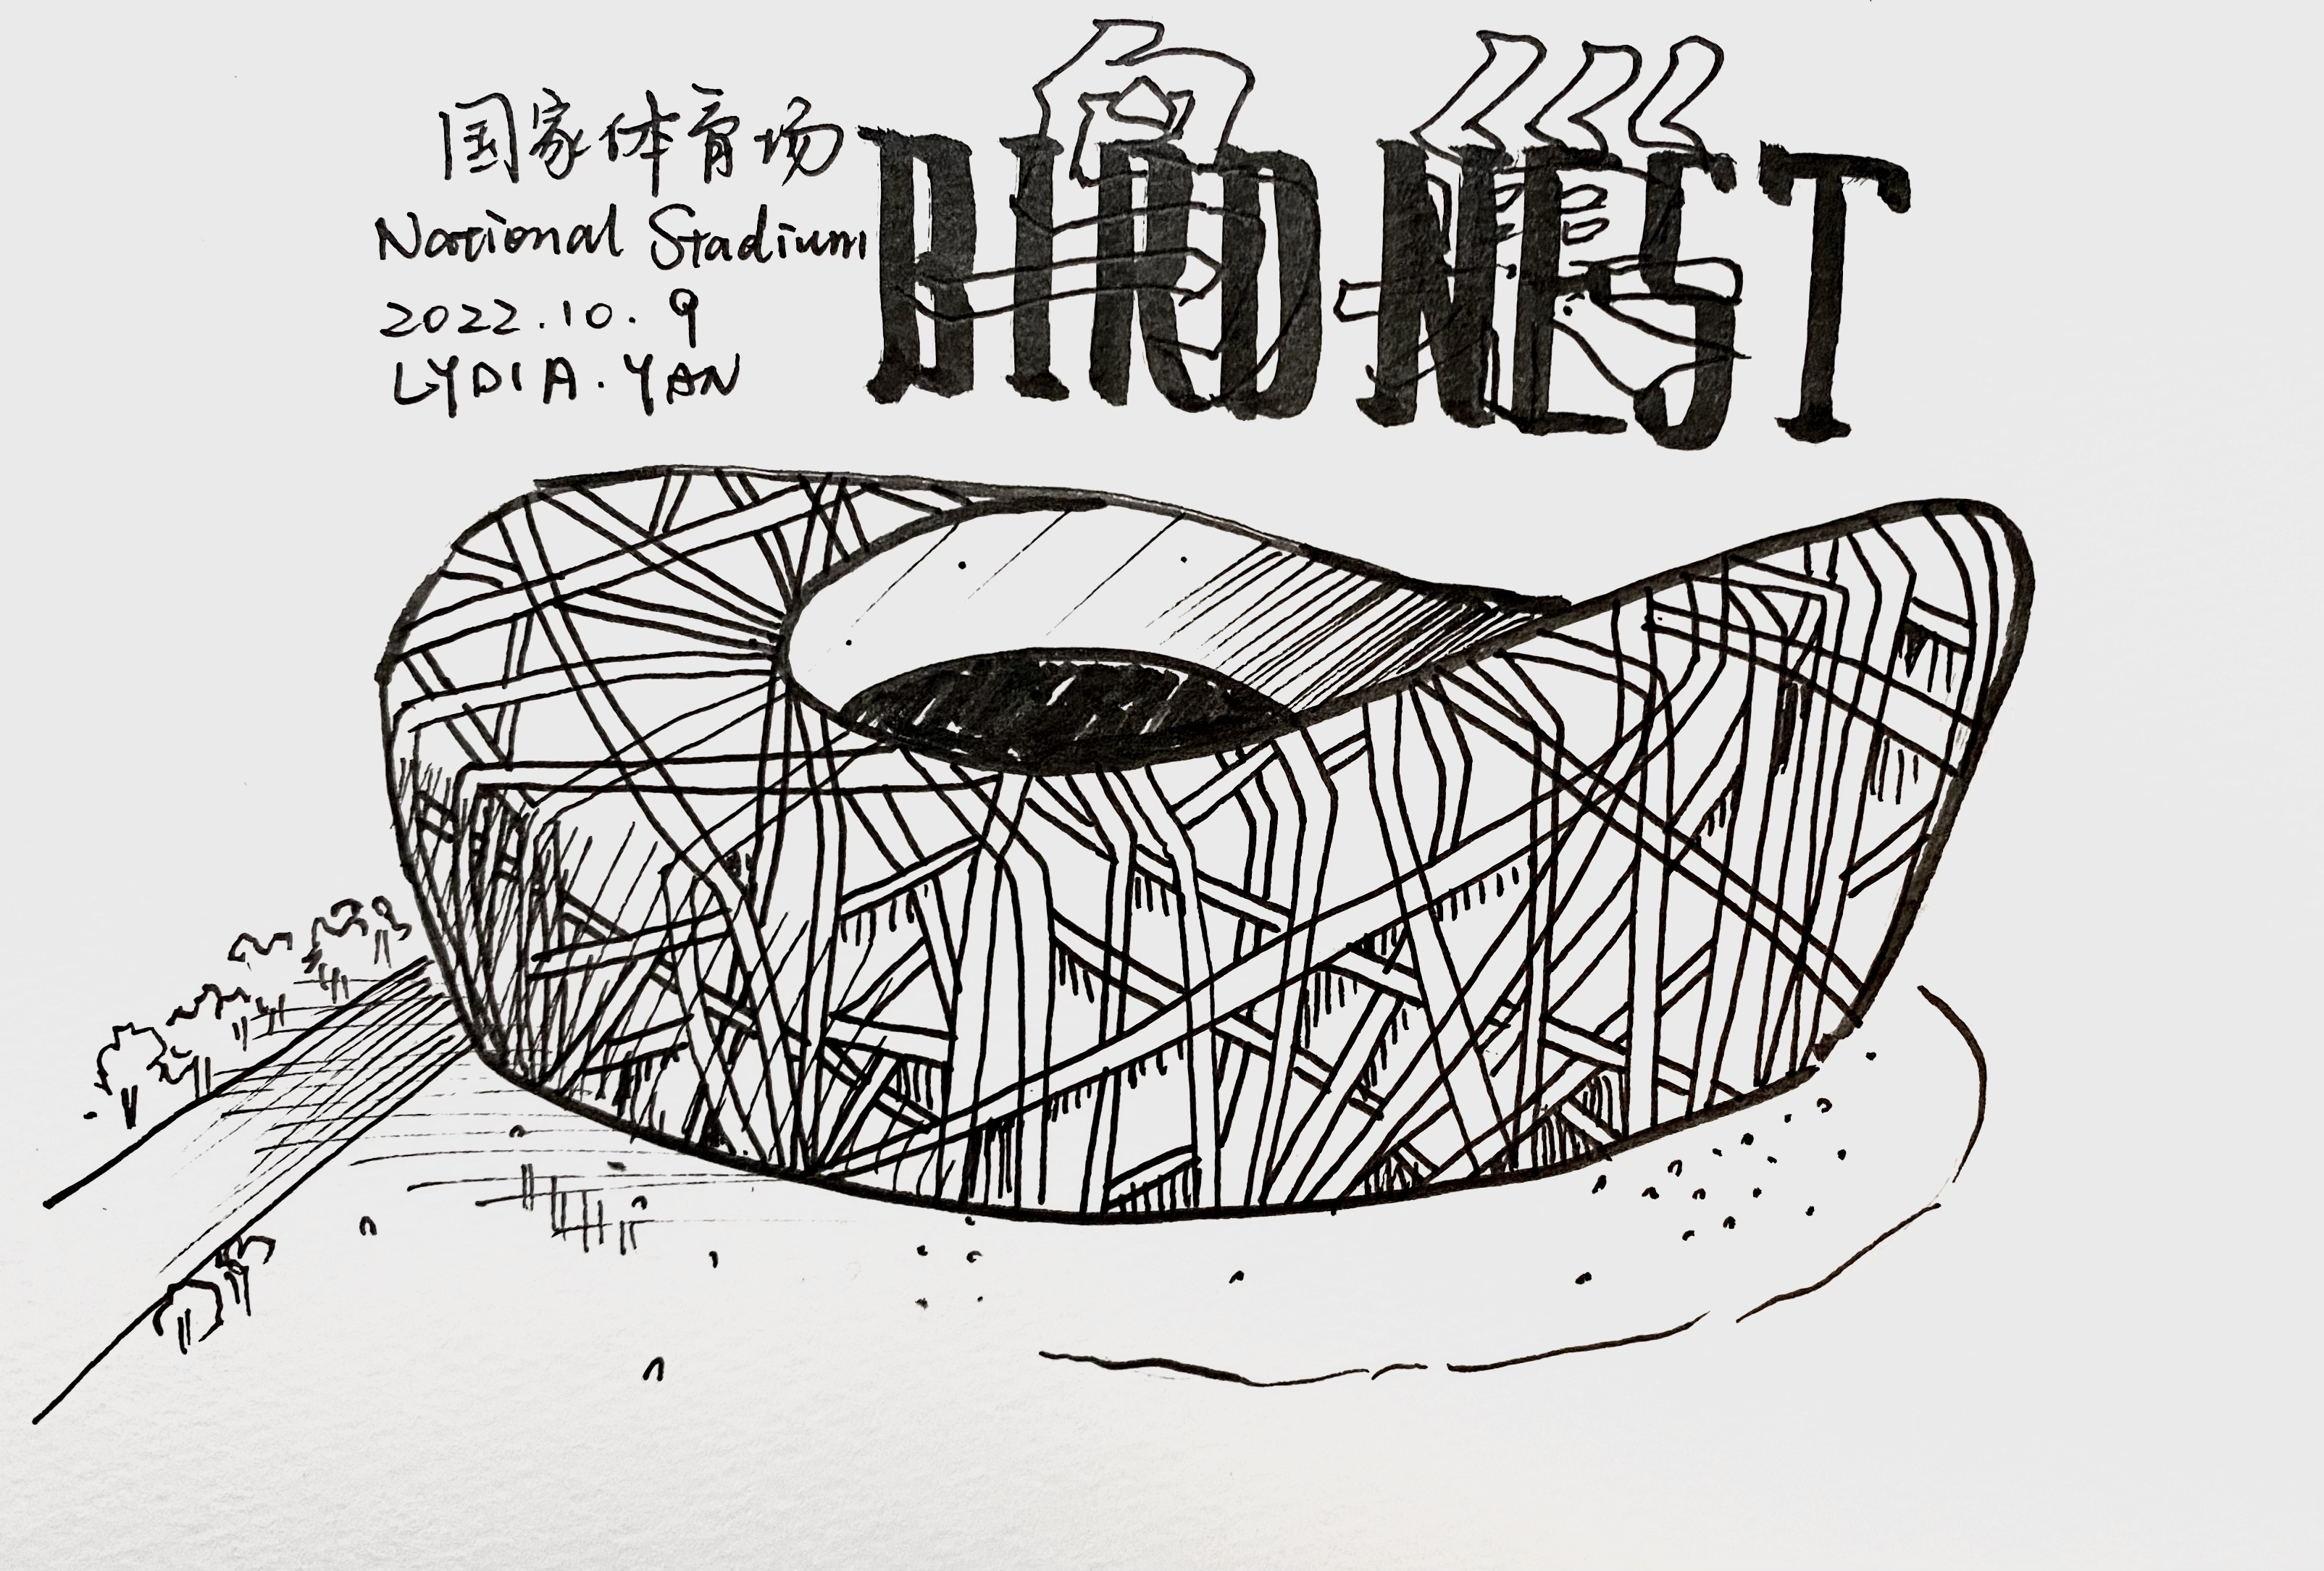 国家体育场
National Stadium
2022.10.9
LYDIA.YAN
鸟巢
BIRD NEST